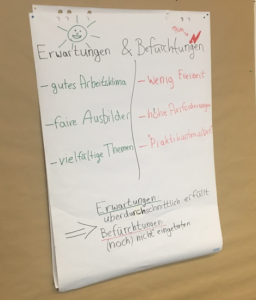 Erwartungen & Befürchtungen
- gutes Arbeitsklima
- wenig Freizeit
- faire Ausbilder
- hohe Anforderungen
- vielfältige Themen
Erwartungen
überdurchschnittlich erfüllt
Befürchtungen
(noch) nicht eingetreten